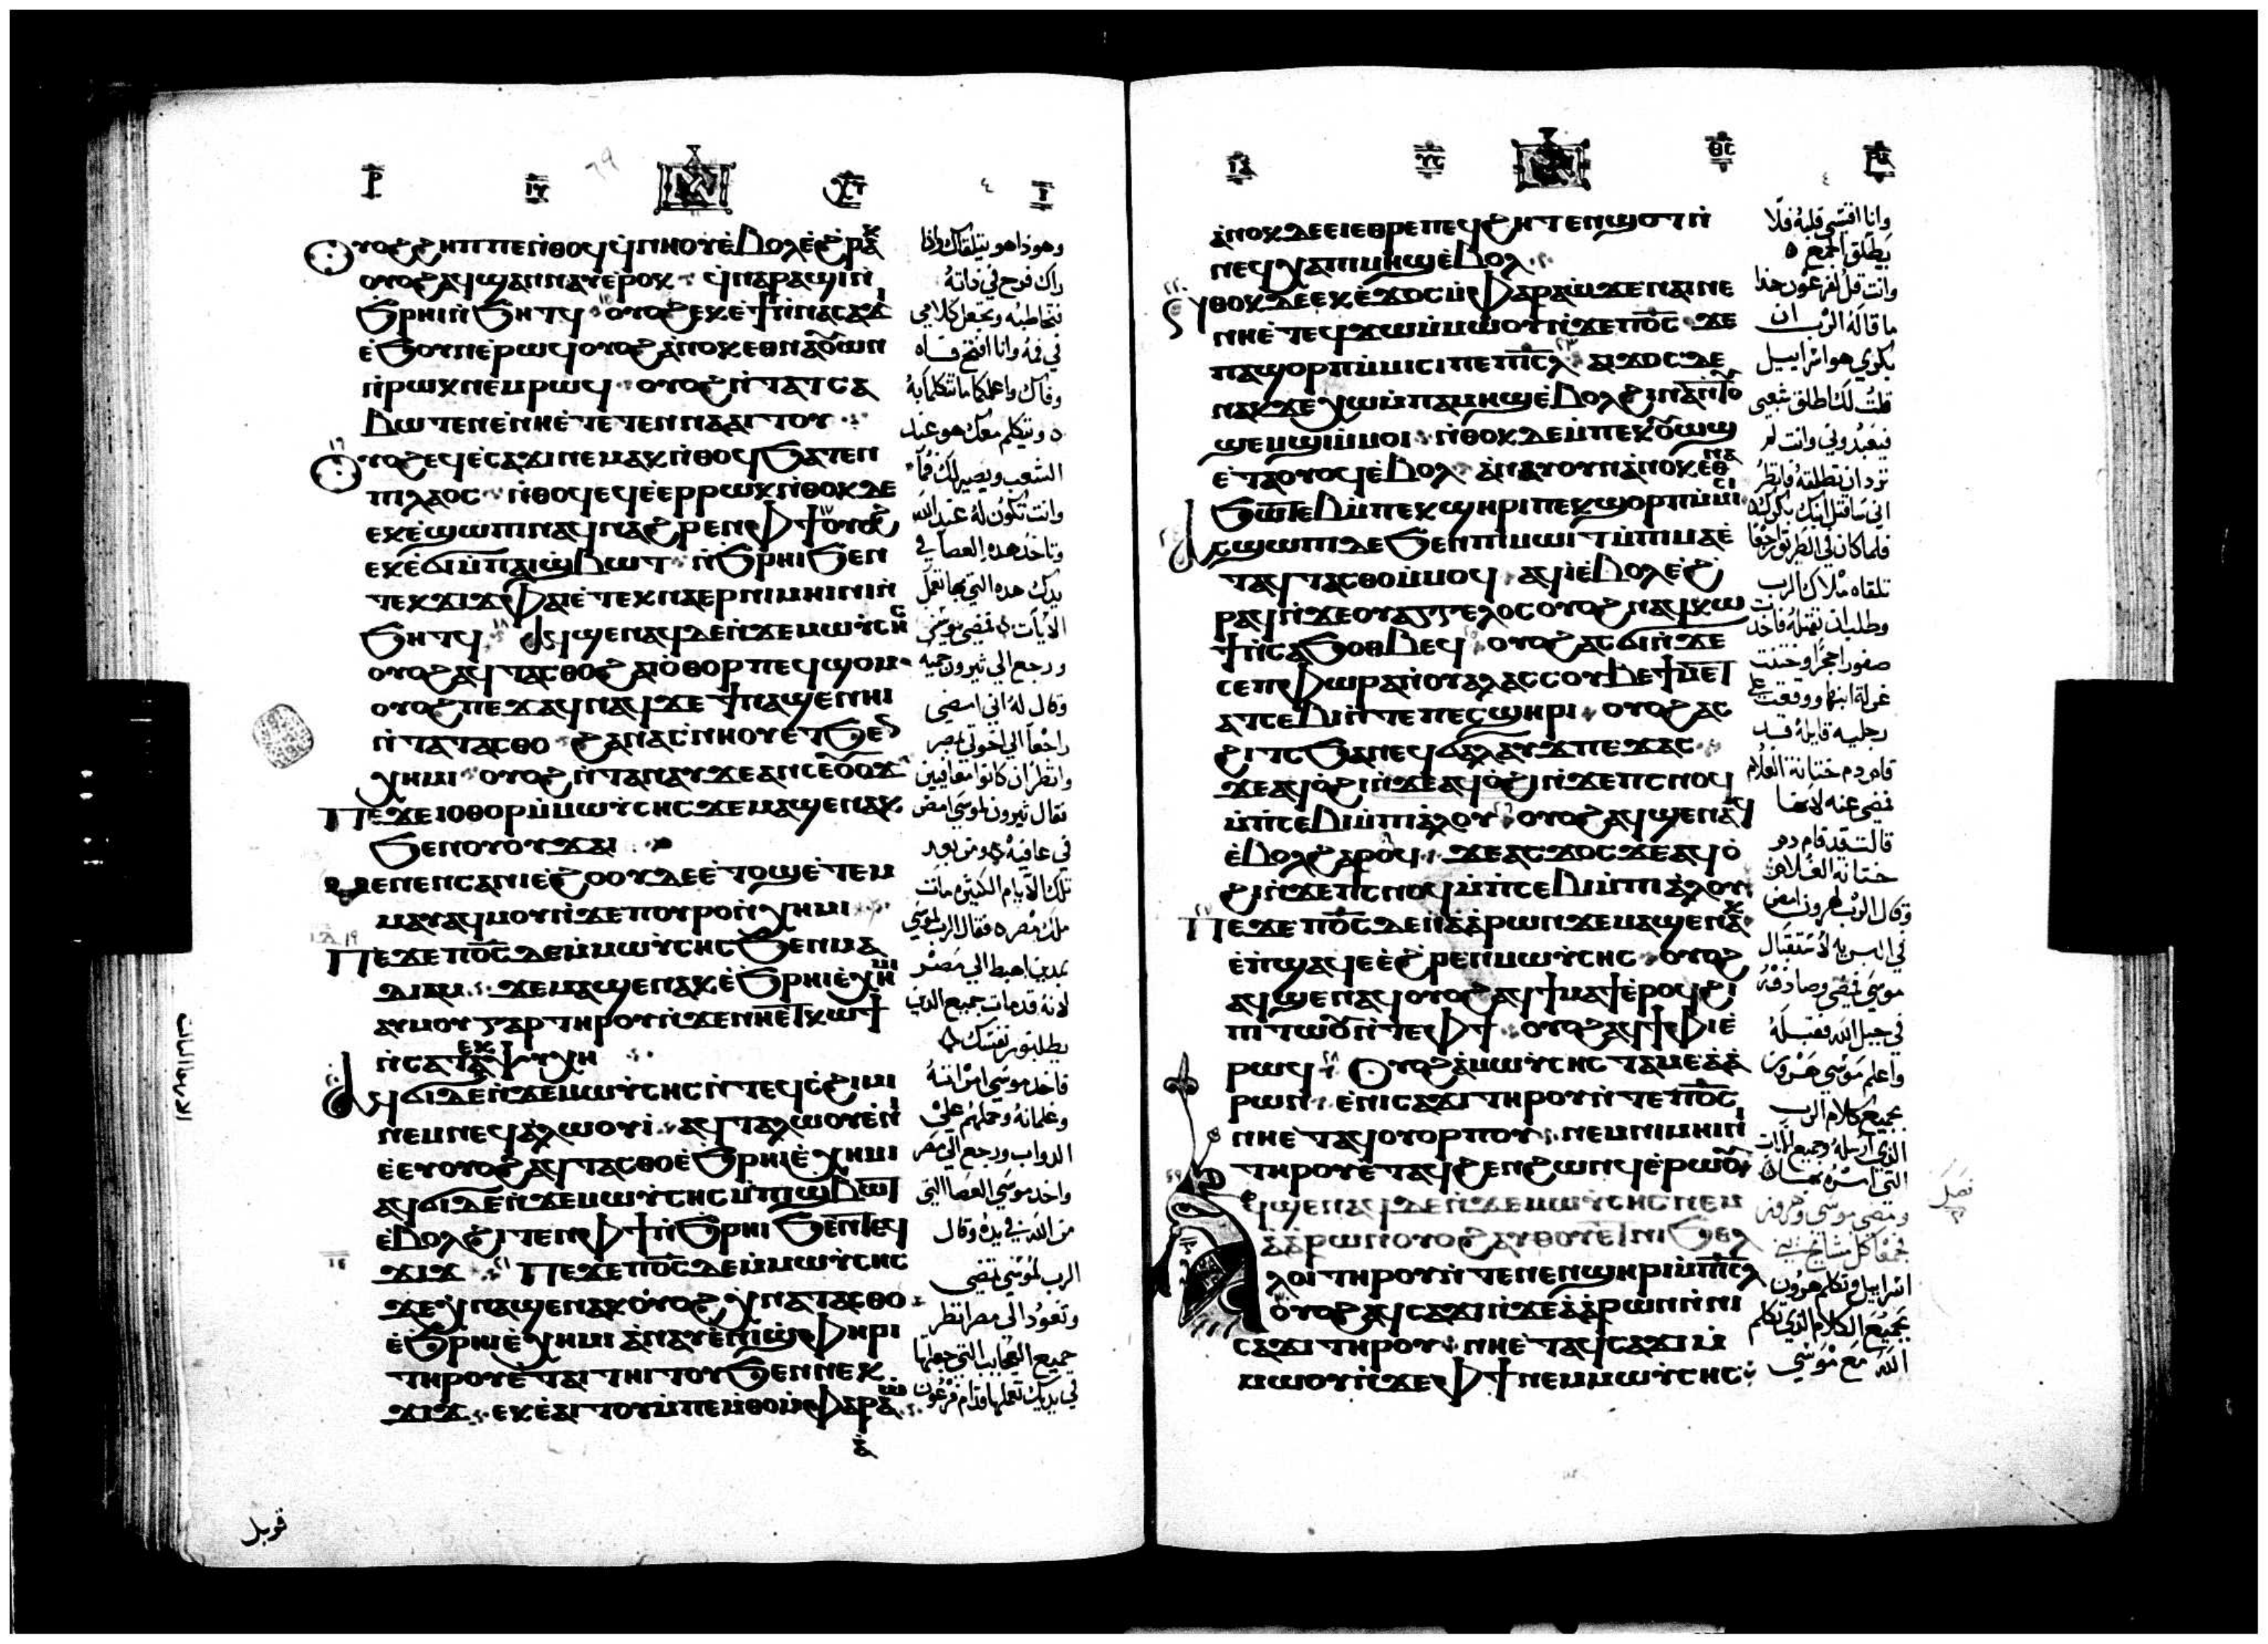 ⲟⲩⲟϩ ϩⲏⲡⲡⲉ ⲛ̀ⲑⲟϥ ϥ̀ⲛⲏⲟⲩ ⲉ̀ⲃⲟⲗ ⲉ̀ϩⲣⲁⲕ
ⲟⲩⲟϩ ⲁϥϣⲁⲛⲛⲁⲩ ⲉ̀ⲣⲟⲕ ϥ̀ⲛⲁⲣⲁϣⲓ ⲛ̀
ϧⲣⲏⲓ ⲛ̀ϧⲏⲧϥ ⲟⲩⲟϩ ⲉⲕⲉϯ ⲛ̀ⲛⲁⲥⲁϫⲓ
ⲉ̀ϧⲟⲩⲛ ⲉ̀ⲣⲱϥ ⲟⲩⲟϩ ⲁ̀ⲛⲟⲕ ⲉⲑⲛⲁⲟⲩⲱⲛ
ⲛ̀ⲣⲱⲕ ⲛⲉⲙ ⲣⲱϥ ⲟⲩⲟϩ ⲛ̀ⲧⲁⲧⲥⲁ
ⲃⲱⲧⲉⲛ ⲉ̀ⲛⲏⲉ̀ⲧⲉⲧⲉⲛⲛⲁⲁⲓⲧⲟⲩ
ⲟⲩⲟϩ ⲉϥⲉ̀ⲥⲁϫⲓ ⲛⲉⲙⲁⲕ ⲛ̀ⲑⲟϥ ϧⲁⲧⲉⲛ
ⲡⲓⲗⲁⲟⲥ ⲛ̀ⲑⲟϥ ⲉϥⲉ̀ⲉⲣⲣⲱⲕ ⲛ̀ⲑⲟⲕ ⲇⲉ
ⲉⲕⲉ̀ϣⲱⲡⲓ ⲛⲁϥ ⲛⲁϩⲣⲉⲛ ⲫϯ ⲟⲩⲟϩ
ⲉⲕⲉ̀ϭⲓ ⲙ̀ⲡⲁⲓϣⲃⲱⲧ ⲛ̀ϧⲣⲏⲓ ϧⲉⲛ
ⲧⲉⲕϫⲓϫ ⲫⲁⲓ ⲉ̀ⲧⲉⲕⲛⲁⲉⲣⲛⲓⲙⲏⲓⲛⲓ ⲛ̀
ϧⲏⲧϥ ⲁϥϣⲉⲛⲁϥ ⲇⲉ ⲛ̀ϫⲉ ⲙⲱⲩ̀ⲥⲏⲥ
ⲟⲩⲟϩ ⲁϥⲧⲁⲥⲑⲟ ϩⲁ ⲓⲟ̀ⲑⲟⲣ ⲡⲉϥϣⲟⲙ
ⲟⲩⲟϩ ⲡⲉϫⲁϥ ⲛⲁϥ ϫⲉ ϯⲛⲁϣⲉⲛⲏⲓ
ⲛ̀ⲧⲁⲧⲁⲥⲑⲟ ϩⲁ ⲛⲁⲥⲛⲏⲟⲩ ⲉⲧϧⲉⲛ
ⲭⲏⲙⲓ ⲟⲩⲟϩ ⲛ̀ⲧⲁⲛⲁⲩ ϫⲉ ⲁⲛ ⲥⲉⲟⲩⲟϫ
ⲡⲉϫⲉ ⲓⲟⲑⲟⲣ ⲙ̀ⲙⲱⲩ̀ⲥⲏⲥ ϫⲉ ⲙⲁϣⲉⲛⲁⲕ
ϧⲉⲛ ⲟⲩⲟⲩϫⲁⲓ
ⲙⲉⲛⲉⲛⲥⲁ ⲛⲓⲉ̀ϩⲟⲟⲩ ⲇⲉ ⲉⲧⲟϣ ⲉ̀ⲧⲉⲙ
ⲙⲁⲩ ⲁϥⲙⲟⲩ ⲛ̀ϫⲉ ⲡⲟⲩⲣⲟ ⲛ̀ⲭⲏⲙⲓ
ⲡⲉϫⲉ ⲡⲟ̅ⲥ̅ ⲇⲉ ⲙ̀ⲙⲱⲩ̀ⲥⲏⲥ ϧⲉⲛ ⲙⲁ
ⲇⲓⲁⲙ ϫⲉ ⲙⲁϣⲉⲛⲁⲕ ⲉ̀ϧⲣⲏⲓ ⲉ̀ⲭⲏⲙⲓ
ⲁⲩⲙⲟⲩ ⲅⲁⲣ ⲧⲏⲣⲟⲩ ⲛ̀ϫⲉ ⲛⲏⲉⲧⲕⲱϯ
ⲛ̀ⲥⲁ ⲧⲉⲕⲯⲩⲭⲏ
ⲁϥϭⲓ ⲇⲉ ⲛ̀ϫⲉ ⲙⲱⲩ̀ⲥⲏⲥ ⲛ̀ⲧⲉϥⲥϩⲓⲙⲓ
ⲛⲉⲙ ⲛⲉϥⲁⲗⲱⲟⲩⲓ̀ ⲁϥⲧⲁⲗⲱⲟⲩ ⲉ̀ⲛⲓ
ⲉ̀ⲉⲩ ⲟⲩⲟϩ ⲁϥⲧⲁⲥⲑⲟ ⲉ̀ϧⲣⲏⲓ ⲉ̀ⲭⲏⲙⲓ
ⲁϥϭⲓ ⲇⲉ ⲛ̀ϫⲉ ⲙⲱⲩ̀ⲥⲏⲥ ⲙ̀ⲡⲓϣⲃⲱⲧ
ⲉ̀ⲃⲟⲗϩⲓⲧⲉⲛ ⲫϯ ⲛ̀ϧⲣⲏⲓ ϧⲉⲛ ⲧⲉϥ
ϫⲓϫ ⲡⲉϫⲉ ⲡⲟ̅ⲥ̅ ⲇⲉ ⲙ̀ⲙⲱⲩ̀ⲥⲏⲥ
ϫⲉ ⲭⲛⲁϣⲉⲛⲁⲕ ⲟⲩⲟϩ ⲭⲛⲁⲧⲁⲥⲑⲟ
ⲉ̀ϧⲣⲏⲓ ⲉ̀ⲭⲏⲙⲓ ⲁ̀ⲛⲁⲩ ⲉ̀ⲛⲓϣⲫⲏⲣⲓ
ⲧⲏⲣⲟⲩ ⲉ̀ⲧⲁⲓⲧⲏⲓⲧⲟⲩ ϧⲉⲛ ⲛⲉⲕ
ϫⲓϫ ⲉⲕⲉ̀ⲁⲓⲧⲟⲩ ⲙ̀ⲡⲉⲙ̀ⲑⲟ ⲙ̀ⲫⲁⲣⲁⲱ
وهوذا هو يتلقاك واذا
راك فرح في ذاته
تخاطبه وتجعل كلامي
في فه وانا افتح فاه
وفاك واعلمكما ما تتكلما به
ويتكلم معك هو عند
الشعب ويصير لك فما
وانت تكون له عند الله
وتاخذ هذه العصا في
يدك هذه التي بها تعمل
الايات فمضى موسى
ورجع الي ثيرون حميه
وقال له اني امضي
راجعا الي اخوتي بمصر
وانظر ان كانوا معافيين
فقال ثيرون لموسى امض
في عافيه ومن بعد
تلك الايام الكثيره مات
ملك مصر فقال الرب لموسى
بمدين اهبط الي مصر
لانه قد مات جميع الذين
يطلبون نفسك
فاخذ موسى امراته
وغلمانه وحملهم على
الدواب ورجع الي مصر
واخذ موسى العصا التي
من الله في يده وقال
الرب لموسى تمضي
وتعود الى مصر انظر
جميع العجايب التي جعلتها
في يديك تعملها قدام فرعون
قوبل
ⲁ̀ⲛⲟⲕ ⲇⲉ ⲉⲓⲉ̀ⲑⲣⲉ ⲡⲉϥϩⲏⲧ ⲉⲛϣⲟⲧ ⲛ̀
ⲛⲉϥⲭⲁ ⲡⲓⲙⲏϣ ⲉ̀ⲃⲟⲗ
ⲛⲑⲟⲕ ⲇⲉ ⲉⲕⲉ̀ϫⲟⲥ ⲙ̀ⲫⲁⲣⲁⲱ ϫⲉ ⲛⲁⲓ ⲛⲉ
ⲛⲏⲉ̀ⲧⲉϥϫⲱ ⲙ̀ⲙⲱⲟⲩ ⲛ̀ϫⲉ ⲡⲟ̅ⲥ̅ ϫⲉ
ⲡⲁϣⲟⲣⲡ ⲙ̀ⲙⲓⲥⲓ ⲡⲉ ⲡⲓ̅ⲥ̅ⲗ̅ ⲁⲓϫⲟⲥ ⲇⲉ
ⲛⲁⲕ ϫⲉ ⲭⲱ ⲙ̀ⲡⲁⲙⲏϣ ⲉ̀ⲃⲟⲗ ϩⲓⲛⲁ ⲛ̀ⲧⲟⲩ
ϣⲉⲙϣⲓ ⲙ̀ⲙⲟⲓ ⲛ̀ⲑⲟⲕ ⲇⲉ ⲙ̀ⲡⲉⲕⲟⲩⲱϣ
ⲉ̀ⲧⲁⲟⲩⲟϥ ⲉ̀ⲃⲟⲗ ⲁ̀ⲛⲁⲩ ⲟⲩⲛ ⲁ̀ⲛⲟⲕ ⲉⲑⲛⲁ
ϧⲱⲧⲉⲃ ⲙ̀ⲡⲉⲕϣⲏⲣⲓ ⲡⲉⲕϣⲟⲣⲡ ⲙ̀ⲙⲓⲥⲓ
ⲁⲥϣⲱⲡⲓ ⲇⲉ ϧⲉⲛ ⲡⲓⲙⲱⲓⲧ ⲙ̀ⲡⲓⲙⲁ ⲉ̀
ⲧⲁϥⲧⲁⲥⲑⲟ ⲙ̀ⲙⲟϥ ⲁϥⲓ̀ ⲉ̀ⲃⲟⲗ ⲉ̀ϩ
ⲣⲁϥ ⲛ̀ϫⲉ ⲟⲩⲁⲅⲅⲉⲗⲟⲥ ⲟⲩⲟϩ ⲛⲁϥⲕⲱ
ϯ ⲛ̀ⲥⲁ ϧⲟⲑⲃⲉϥ ⲟⲩⲟϩ ⲁⲥϭⲓ ⲛ̀ϫⲉ
ⲥⲉⲡⲫⲱⲣⲁ ⲛ̀ⲟⲩⲁⲗ ⲁⲥⲥⲟⲩⲃⲉ ϯⲙⲉⲧ
ⲁⲧⲥⲉⲃⲓ ⲛ̀ⲧⲉ ⲡⲉⲥϣⲏⲣⲓ ⲟⲩⲟϩ ⲁⲥ
ϩⲓⲧⲥ ϧⲁ ⲛⲉϥϭⲁⲗⲁⲩϫ ⲡⲉϫⲁⲥ
ϫⲉ ⲁϥⲟ̀ϩⲓ ⲛ̀ϫⲉ ⲁϥⲟ̀ϩⲓ ⲛ̀ϫⲉ ⲡⲓⲥⲛⲟϥ
ⲙ̀ⲡⲥⲉⲃⲓ ⲙ̀ⲡⲓⲁ̀ⲗⲟⲩ ⲟⲩⲟϩ ⲁϥϣⲉⲛⲁϥ
ⲉ̀ⲃⲟⲗ ϩⲁⲣⲟϥ ϫⲉ ⲁⲥϫⲟⲥ ϫⲉ ⲁϥⲟ̀
ϩⲓ ⲛ̀ϫⲉ ⲡⲓⲥⲛⲟϥ ⲙ̀ⲡⲥⲉⲃⲓ ⲙ̀ⲡⲓⲁ̀ⲗⲟⲩ
ⲡⲉϫⲉ ⲡⲟ̅ⲥ̅ ⲇⲉ ⲛ̀ⲁ̀ⲁ̀ⲣⲱⲛ ϫⲉ ⲙⲁϣⲉⲛⲁⲕ
ⲉ̀ⲡϣⲁϥⲉ ⲉ̀ϩⲣⲉⲛ ⲙⲱⲩ̀ⲥⲏⲥ ⲟⲩⲟϩ
ⲁϥϣⲉⲛⲁϥ ⲟⲩⲟϩ ⲁϥϯⲙⲁϯ ⲉ̀ⲣⲟϥ ϩⲓ
ⲡⲓⲧⲱⲟⲩ ⲛ̀ⲧⲉ ⲫϯ ⲟⲩⲟϩ ⲁϥϯⲫⲓ ⲉ̀
ⲣⲱϥ ⲟⲩⲟϩ ⲁ̀ ⲙⲱⲩ̀ⲥⲏⲥ ⲧⲁⲙⲉ ⲁ̀ⲁ̀
ⲣⲱⲛ ⲉ̀ⲛⲓⲥⲁϫⲓ ⲧⲏⲣⲟⲩ ⲛ̀ⲧⲉ ⲡⲟ̅ⲥ̅
ⲛⲏⲉ̀ⲧⲁϥⲟⲩⲟⲣⲡⲟⲩ ⲛⲉⲙ ⲛⲓⲙⲏⲓⲛⲓ
ⲧⲏⲣⲟⲩ ⲉ̀ⲧⲁϥϩⲉⲛϩⲱⲛϥ ⲉ̀ⲣⲱⲟⲩ
ⲁϥϣⲉⲛⲁϥ ⲇⲉ ⲛ̀ϫⲉ ⲙⲱⲩ̀ⲥⲏⲥ ⲛⲉⲙ
ⲁ̀ⲁ̀ⲣⲱⲛ ⲟⲩⲟϩ ⲁⲩⲑⲟⲩⲉⲧ ⲛⲓϧⲉⲗ
ⲗⲟⲓ ⲧⲏⲣⲟⲩ ⲛ̀ⲧⲉ ⲛⲉⲛϣⲏⲣⲓ ⲙ̀ⲡⲓ̅ⲥ̅ⲗ̅
ⲟⲩⲟϩ ⲁϥⲥⲁϫⲓ ⲛ̀ϫⲉ ⲁ̀ⲁ̀ⲣⲱⲛ ⲛ̀ⲛⲓ
ⲥⲁϫⲓ ⲧⲏⲣⲟⲩ ⲛⲏⲉ̀ⲧⲁϥⲥⲁϫⲓ ⲙ̀
ⲙⲱⲟⲩ ⲛ̀ϫⲉ ⲫϯ ⲛⲉⲙ ⲙⲱⲩ̀ⲥⲏⲥ
وانا اقسي قلبه فلا
يطلق الجمع
وانت قل لفرعون هذا
ما قاله الرب ان
بكري هو اسراييل
قلت لك اطلق شعبي
فيعبدوني وانت لم
ترد ان تطلقه فانظر
اني ساقتل ابنك بكرك
فلما كان في الطريق راجعا
تلقاه ملاك الرب
وطلب ان يقتله فاخذت
صفورا حجرا وختنت
غرلة ابنها ووقعت على
رجليه قايله قد
قام دم ختانة الغلام
فمضى عنه لانها
قالت قد قام دم
ختانة الغلام
وقال الرب لهرون امض
في البريه لاستقبال
موسى فمضى وصادفه
في جبل الله فقبله
واعلم موسى هرون
بجميع كلام الرب
الذي ارسله وجميع الايات
التي امره بها
ومضى موسى وهرون
فجمعا كل مشايخ بني
اسراييل وتكلم هرون
بجميع الكلام الذي تكلم
الله مع موسى
فصل